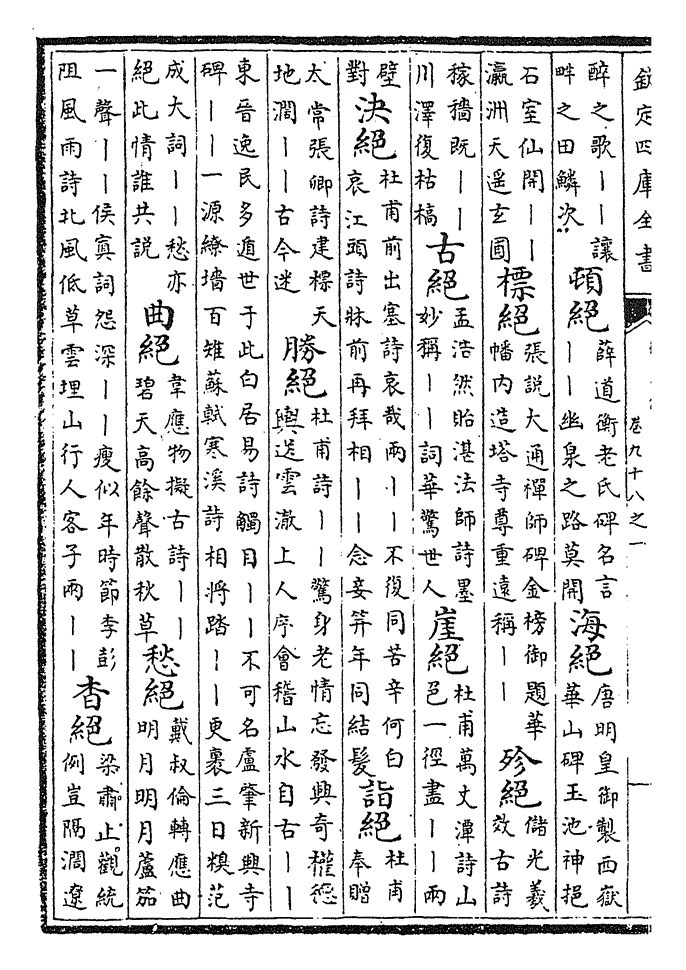 欽定四庫全書
卷九十八之一
醉之歌丨丨讓
畔之田鱗次
頓絕
薛道衡老氏碑名言
丨丨幽泉之路莫開
海絕
唐明皇御製西嶽
華山碑玉池神挹
石室仙開丨丨
瀛洲天遥玄圃
標絕
張説大通禪師碑金榜御題華
幡内造塔寺尊重遠稱丨丨
殄絕
儲光羲
效古詩
稼穡既丨丨
川澤復枯槁
古絕
孟浩然貽湛法師詩墨
妙稱丨丨詞華驚世人
崖絕
杜甫萬丈潭詩山
邑一徑盡丨丨兩
壁
對
決絕
杜甫前出塞詩哀哉兩丨丨不復同苦辛何白
哀江頭詩牀前再拜相丨丨念妾笄年同結髮
詣絕
杜甫
奉贈
太常張卿詩建標天
地濶丨丨古今迷
勝絕
杜甫詩丨丨驚身老情忘發興奇權德
輿送雲澈上人序會稽山水自古丨丨
東晉逸民多遁世于此白居易詩觸目丨丨不可名盧肇新興寺
碑丨丨一源繚墻百雉蘇軾寒溪詩相將踏丨丨更裹三日糗范
成大詞丨丨愁亦
絕此情誰共説
曲絕
韋應物擬古詩丨丨
碧天高餘聲散秋草
愁絕
戴叔倫轉應曲
明月明月蘆笳
一聲丨丨侯寘詞怨深丨丨瘦似年時節李彭
阻風雨詩北風低草雲埋山行人客子兩丨丨
杳絕
梁肅止觀統
例豈隔濶遼